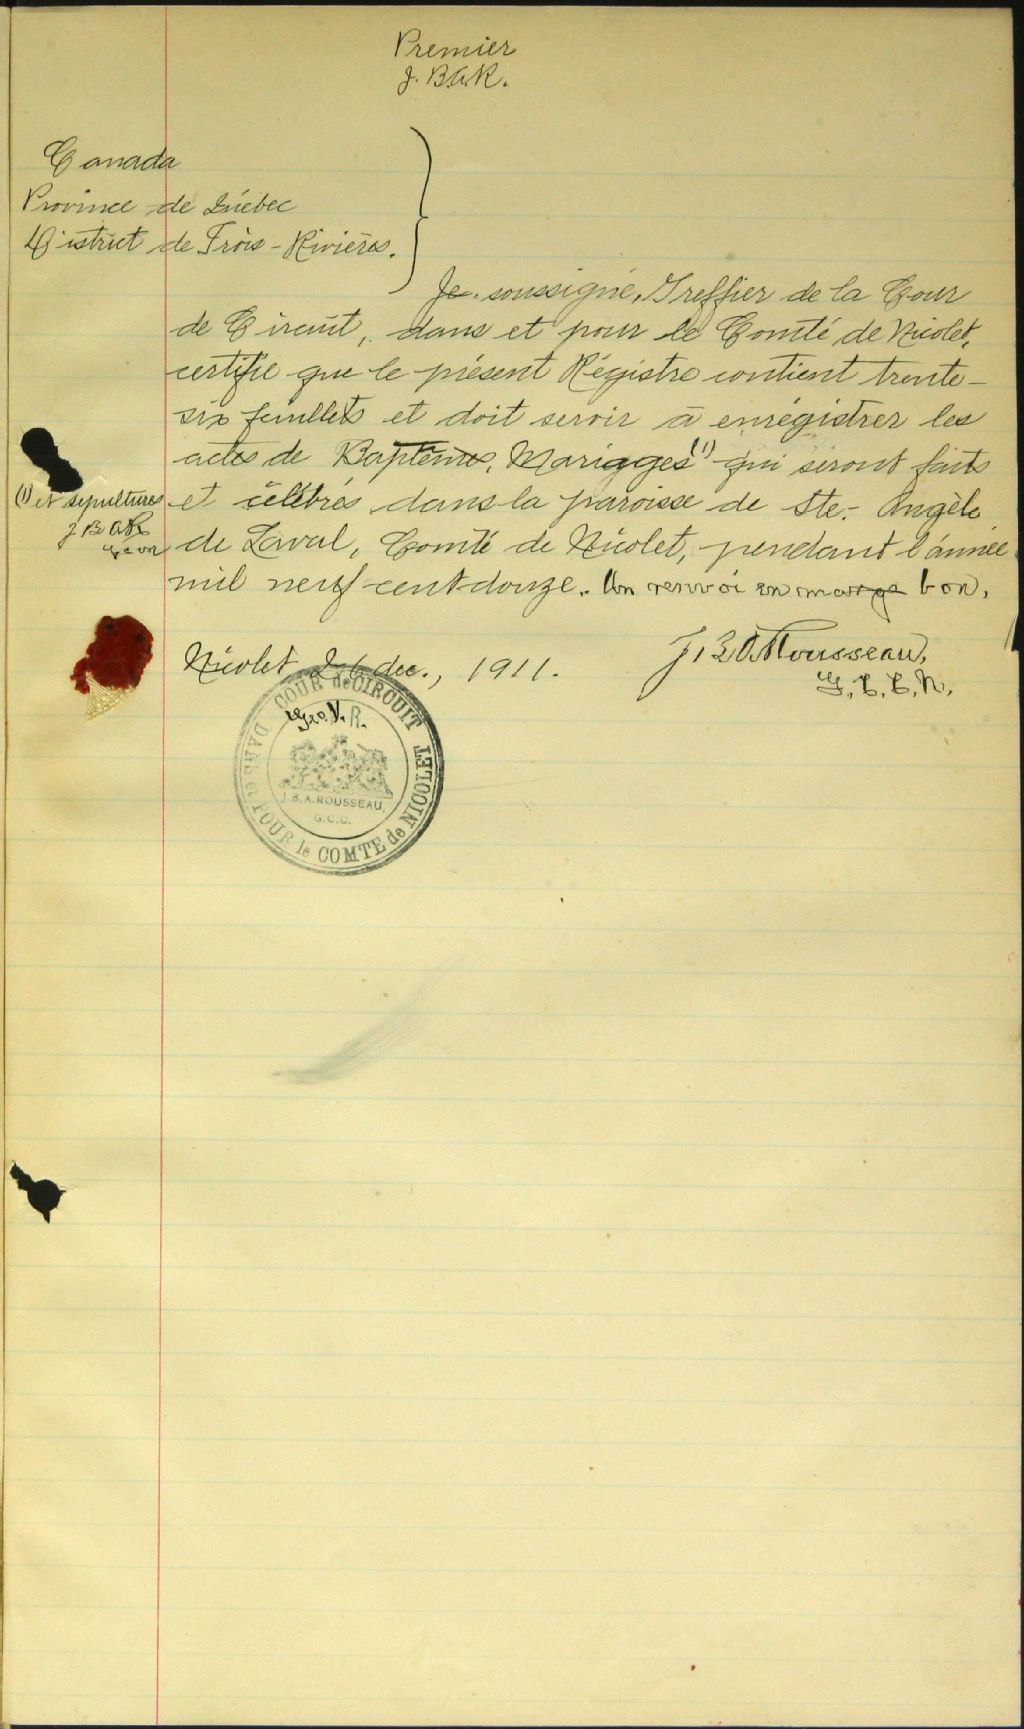 Premier
J. B. A. R.
Canada
Province de Québec
District de Trois-Rivières.
Je soussigné, Greffier de la Cour
de Circuit, dans et pour le Comté de Nicolet,
certifie que le présent Régistre contient trente-
six feuillets et doit servir à enrégistrer les
actes de Baptêmes, Mariages (1) qui seront faits
(1) et sépultures
J B A R
et célébrés dans la paroisse de Ste. Angèle
de Laval, Comté de Nicolet, pendant l'année
mil neuf-cent-douze. Un renvoi en marge bon.
Nicolet 26 dec., 1911.
J. B. A. Rousseau,
G. C. C. N.
COUR de CIRCUIT
DANS et POUR le COMTE de NICOLET
Geo. V. R.
J.B.A. ROUSSEAU,
G.C.C.